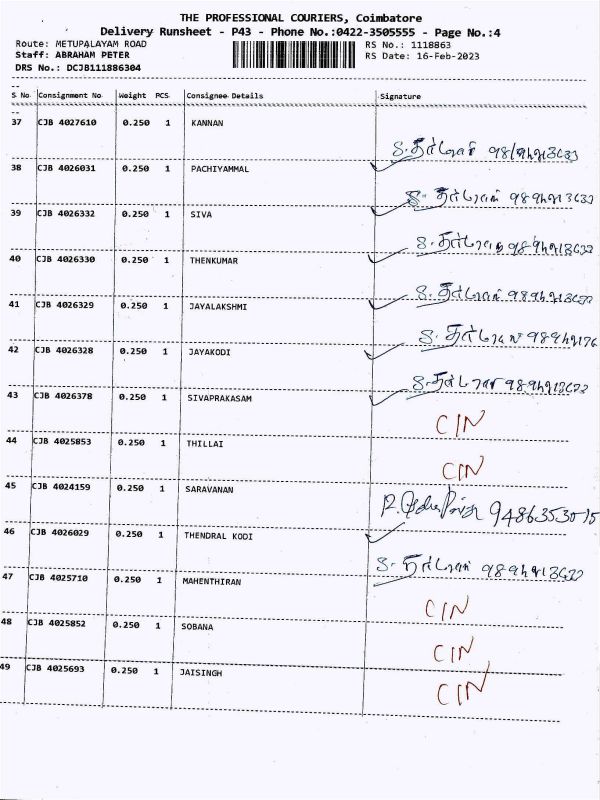 THE PROFESSIONAL COURIERS, Coimbatore
Delivery Runsheet - P43 - Phone No.:0422-3505555 - Page No.:4
Route: METUPALAYAM ROAD RS No.: 1118863
Staff: ABRAHAM PETER RS Date: 16-Feb-2023
DRS No.: DCJB111886304
--
S No Consignment No Weight PCS Consignee Details Signature
--
37 CJB 4027610 0.250 1 KANNAN
38 CJB 4026031 0.250 1 PACHIYAMMAL
39 CJB 4026332 0.250 1 SIVA
40 CJB 4026330 0.250 1 THENKUMAR
41 CJB 4026329 0.250 1 JAYALAKSHMI
42 CJB 4026328 0.250 1 JAYAKODI
43 CJB 4026378 0.250 1 SIVAPRAKASAM CIN
44 CJB 4025853 0.250 1 THILLAI CIN
45 CJB 4024159 0.250 1 SARAVANAN
46 CJB 4026029 0.250 1 THENDRAL KODI
47 CJB 4025710 0.250 1 MAHENTHIRAN CIN
48 CJB 4025852 0.250 1 SOBANA CIN
49 CJB 4025693 0.250 1 JAISINGH CIN